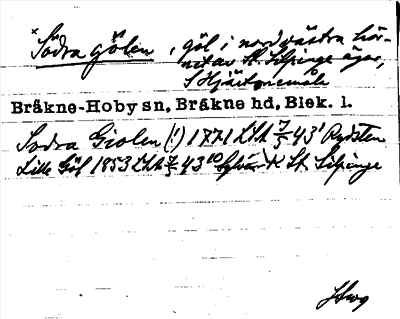 *Södra gölen, göl i nordvästra hör-
net av St. Silpinge ägor,
S Hjärtsemåla
Bräkne-Hoby sn, Bräkne hd, Blek. l.
Sodra Giolen (!) 1771 LSA 7/5 43¹ Rydsten
Lille Göl 1853 LSA 7/5 43¹⁰ St. Silpinge